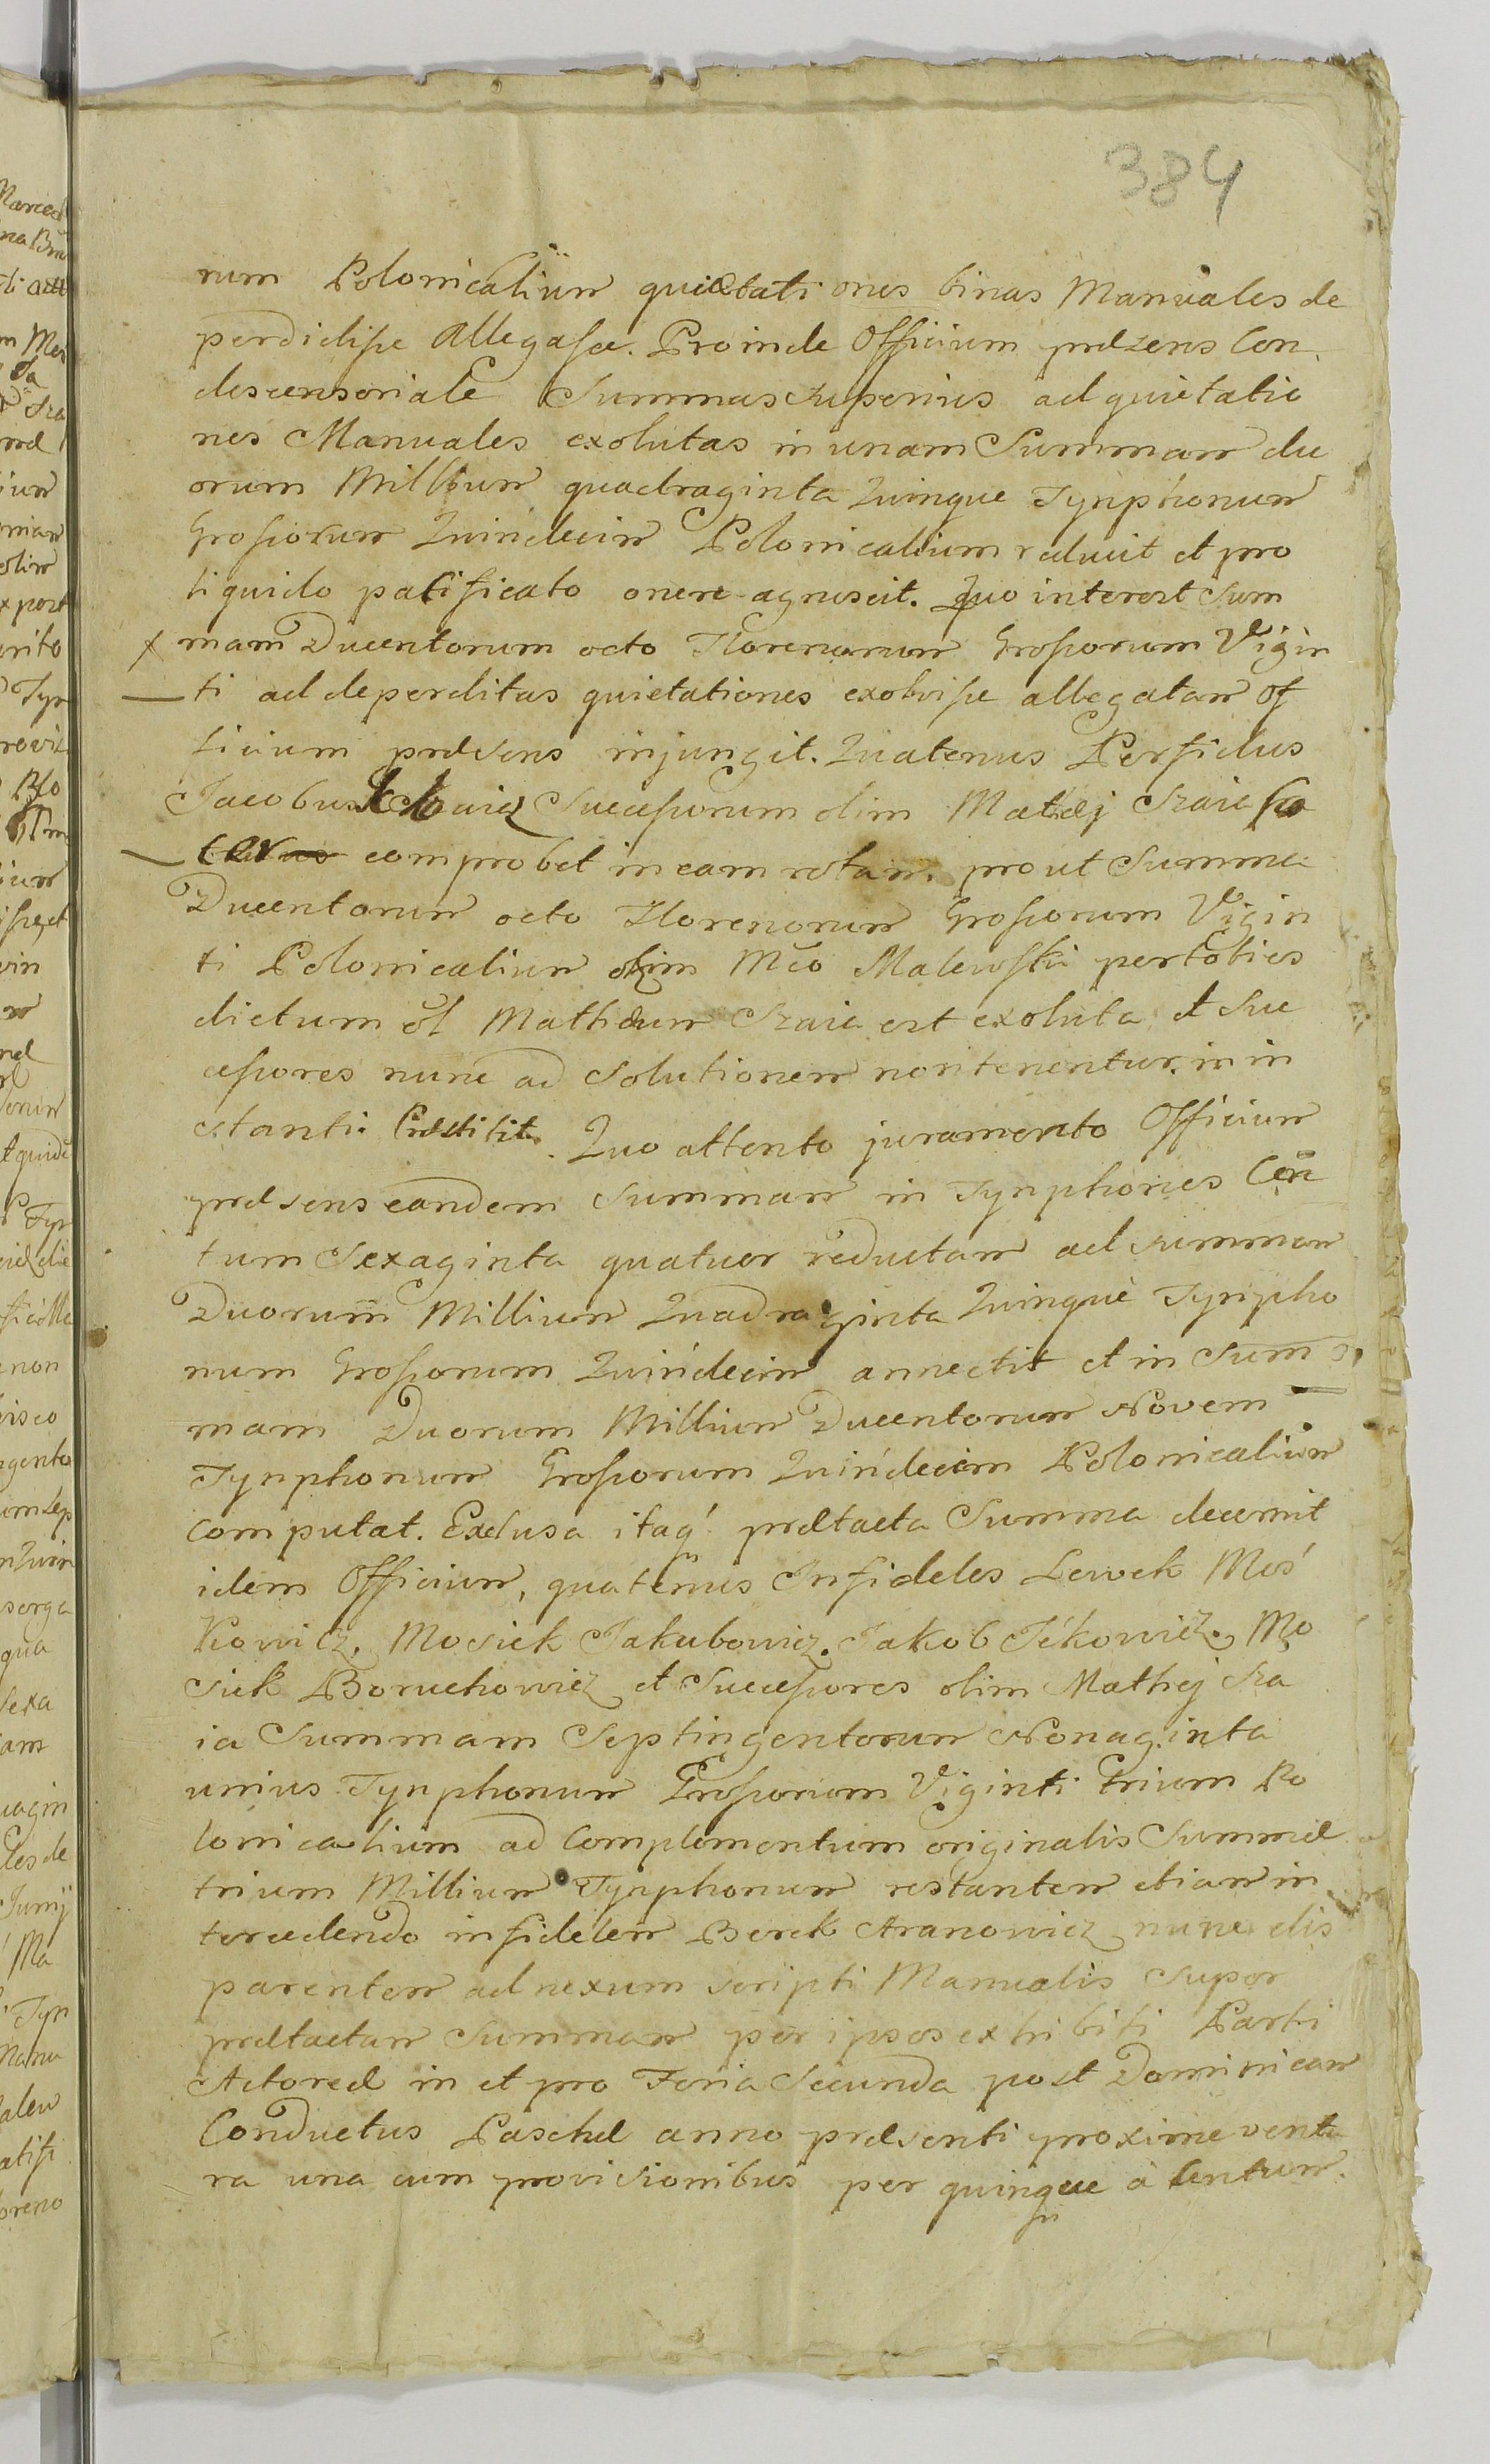 384
rum Polonicaliũm quietationes binas Manuales de
perdidisse Allegasse. Proinde Officium præzens Con
descensoriale Summas superius ad quietatio
nes Manuales exolutas in unam Summam du
orum Millium quadraginta Quinque Tynphonum
Grossorum Quindecim Polonicalium reduit et pro
liquido patificato onere agnoscit. Quo interest Sum
x mam Ducentorum octo Florenorum Grossorum Vigin
— ti ad deperditas quietationes exolvisse allegatam Of
ficium præsens injungit. Quatenus Perfidus
Jacobus Successorum olim Mathæj Szaia
— comprobet in eam rotam. prout Summa
Ducentorum octo Florenorum Grossorum Vigin
ti Polonicalium olim Mco Malewski per toties
dictum ol Mathæum Szaia est exoluta, et Suc
cessores nunc ad Solutionem non tenentur. in in
stanti Præstitit. Quo attento juramento Officium
præsens eandem Summam in Tynphones Cen
tum Sexaginta quatuor reductam ad summam
Duorum Millium Quadraginta Quinque Tynpho
num Grossorum Quindecim annectit et in Sum
mam Duorum Millium Ducentorum Novem
Tynphonum Grossorum Quindecim Polonicalium
computat. Exclusa itaq´ prætacta Summa decernit
idem Officium, quatenus Infideles Lewek Mos´
kowicz, Mosiek Jakubowicz. Jakob Jckowicz. Mo
siek Boruchowicz et Successores olim Mathej Sza
ia Summam Septingentorum Nonaginta
unius Tynphonum Grossorum Viginti trium Po
lonicalium ad Complementum originalis Summæ
trium Millium Tynphonum restantem etiam in
tercedendo infidelem Berek Aranowicz nunc dis
parentem ad nexum scripti Manualis super
prætactam Summam per ipsos exhibiti Parti
Actoreæ in et pro Feria Secunda post Dominicam
Conductus Paschæ anno præsenti proxime ventu
ra una cum provisionibus per quinque à Centum.